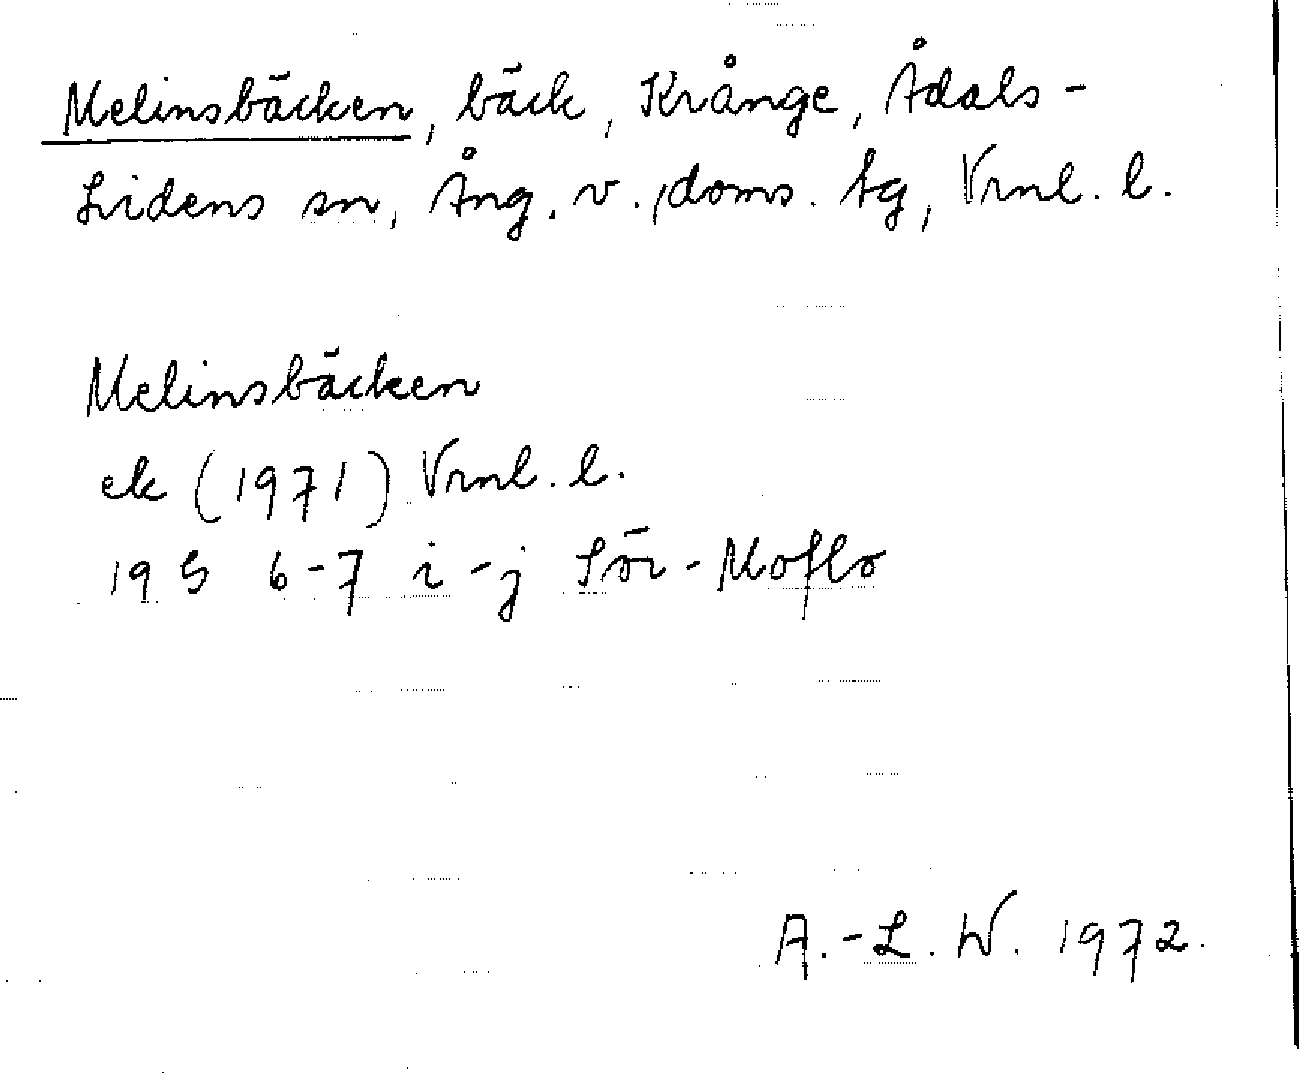 Melinsbäcken, bäck, Krånge, Ådals-
Lidens sn, Ång. v. doms. tg, Vrnl. l.
Melinsbäcken
ek (1971) Vrnl. l.
19 G 6-7 i-j Sör-Moflo
A.-L. W. 1972.